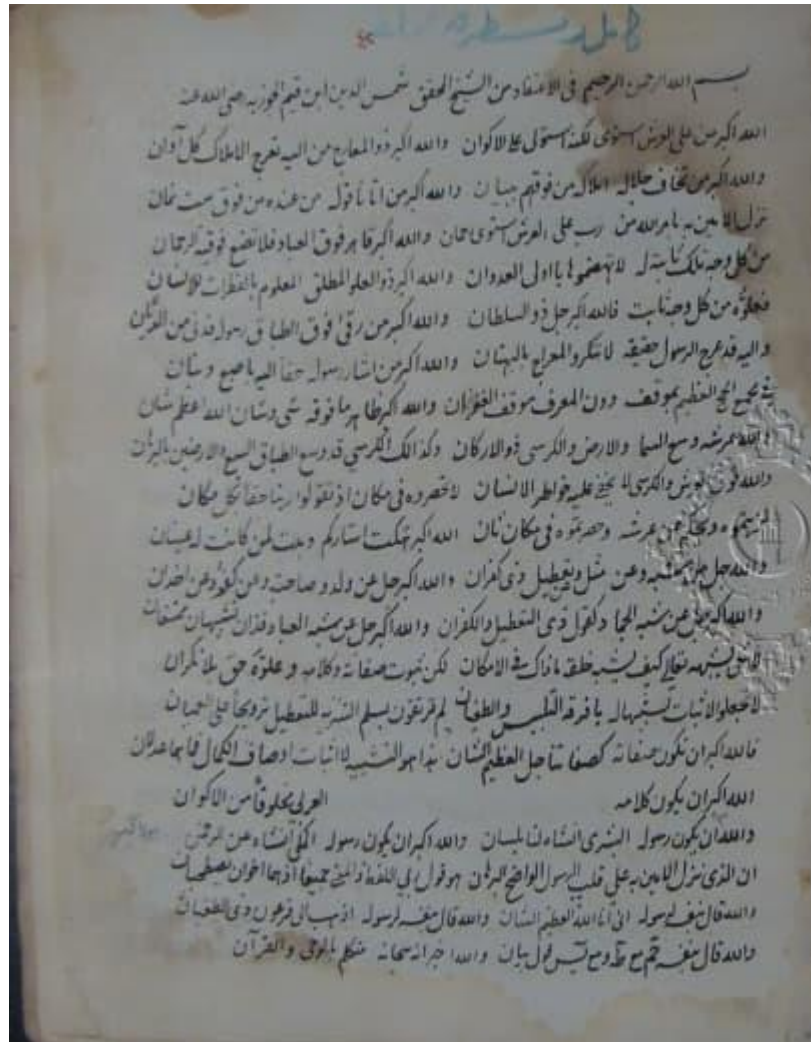 بسم الله الرحمن الرحيم في الاعتقاد من الشيخ المحقق شمس الدين ابن قيم الجوزيه رضى الله عنه
الله اكبر من على العرش استوى لكنه استولى على الاكوان والله اكبر ذو المعارج من اليه تعرج الاملاك كل اوان
والله اكبر من تخاف جلاله املاكه من فوقهم ببيان والله اكبر من اتانا قوله من عنده من فوق ست ثمان
نزل الامين به بامر الله من رب على العرش استوى رحمان والله اكبر قاهر فوق العباد فلا تضع فوقية الرحمان
من كل وجه تلك ثابتة له لا تهضموها يا اولى العدوان والله اكبر ذو العلو المطلق المعلوم بالفطرات للانسان
فعلوه من كل وجه ثابت فالله اكبر جل ذو السلطان والله اكبر من رقى فوق الطباق رسوله فدنى من الديان
واليه قد عرج الرسول حقيقة لا تنكروا المعراج بالبهتان والله اكبر من اشار رسوله حقا اليه باصبع وبنان
في مجمع الحج العظيم بموقف دون المعرف موقف الغفران والله اكبر ظاهر ما فوقه شى وشان الله اعظم شان
والله عرشه وسع السما والارض والكرسى ذو الاركان وكذالك الكرسي قد وسع الطباق السبع والارضين بالبرهان
والله فوق العرش والكرسى لا يخفى عليه خواطر الانسان لا تحصروه في مكان اذ تقولوا ربنا حقا بكل مكان
نزهتموه بجهلكم عن عرشه وحصرتموه في مكان ثان الله اكبر هتكت استاركم وبدت لمن كانت له عينان
والله جل عن شبه وعن مثل وعن تعطيل ذى كفران والله اكبر جل عن ولد وصاحبة وعن كفو وعن اخدان
والله اكبر جل عن شبه الجماد كقول ذى التعطيل والكفران والله اكبر جل عن شبه العباد فذان تشبيهان ممتنعان
كيف يشبه خلقه ماذاك في الامكان لكن ثبوت صفاته وكلامه وعلوه حق بلا نكران
لا تجعلوا الاثبات تشبيها له يا فرقة التلبيس والطغيان كم ترتقون بسلم التنزيه للتعطيل ترويجا على العميان
فالله اكبر ان تكون صفاته كصفاتنا جل العظيم الشان هذا هو التشبيه لا اثبات اوصاف الكمال فما هما عدلان
الله اكبر ان يكون كلامه العربى مخلوقا من الاكوان
والله اكبر ان يكون رسوله البشرى انشاه لنا بلسان والله اكبر ان يكون رسوله الملكى انشاه عن الرحمن
ان الذى نزل الامين به على قلب الرسول الواضح البرهان هو قول ربي اللفظ والمعنى جميعا اذ هما اخوان مصطحبان
والله قال بنفسه لرسوله انى انا الله العظيم الشان والله قال بنفسه لرسوله اذهب الى فرعون ذى الطغيان
والله قال بنفسه حم مع طه ومع يس قول بيان والله اخبر انه سبحانه متكلم بالوحى والقرآن